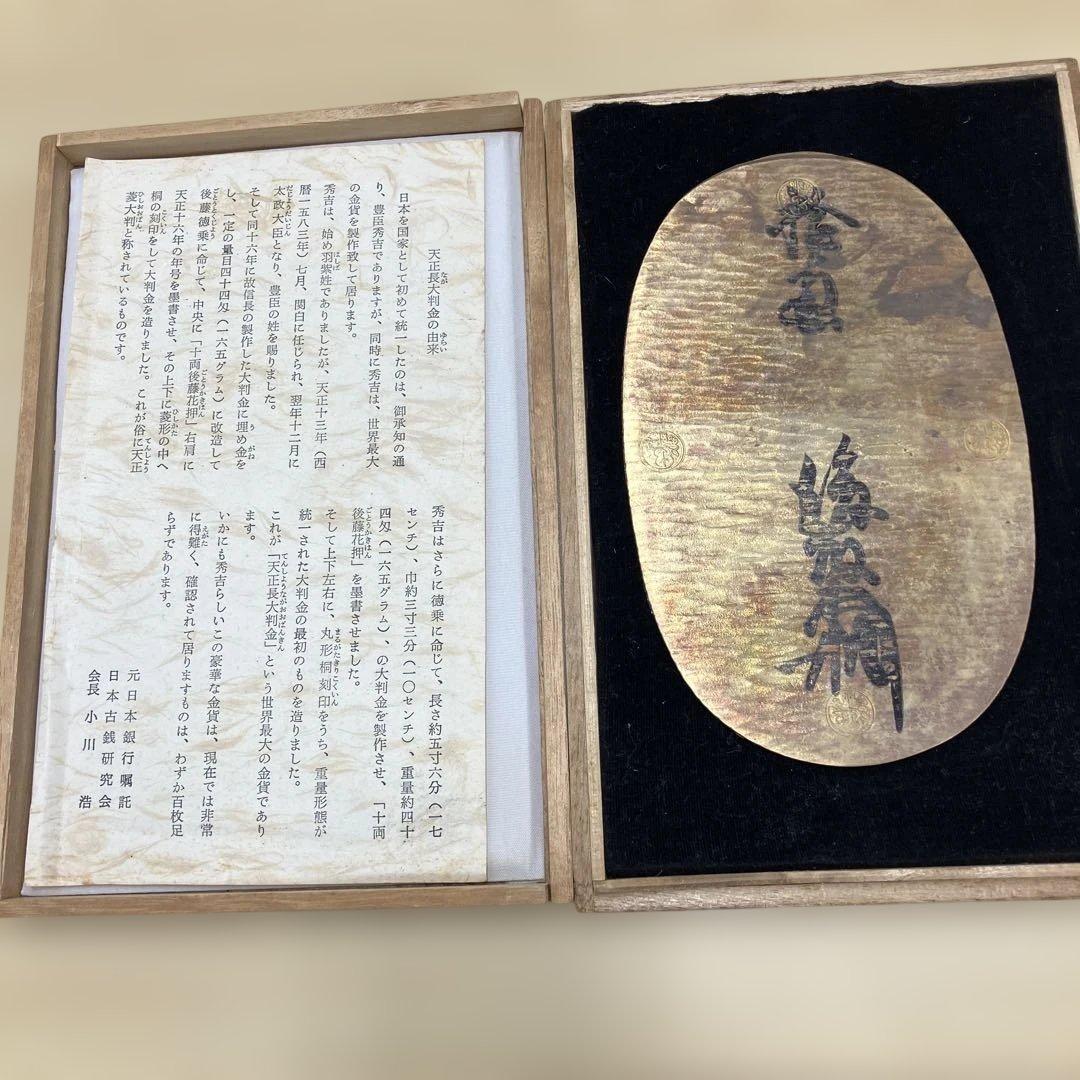 天正長大判金の由来
日本を国家として初めて統一したのは、御承知の通
り、豊臣秀吉でありますが、同時に秀吉は、世界最大
の金貨を製作致して居ります。
秀吉は、始め羽紫姓でありましたが、天正十三年(西
暦一五八三年)七月、関白に任じられ、翌年十二月に
太政大臣となり、豊臣の姓を賜りました。
そして同十六年に故信長の製作した大判金に埋め金を
し、一定の量目四十四匁(一六五グラム)に改造して
後藤徳乗に命じて、中央に「十両後藤花押」右肩に
天正十六年の年号を墨書させ、その上下に菱形の中へ
桐の刻印をして大判金を造りました。これが俗に天正
菱大判と称されているものです。
秀吉はさらに徳乗に命じて、長さ約五寸六分(一七
センチ)、巾約三寸三分(一〇センチ)、重量約四十
四匁(一六五グラム)、の大判金を製作させ、「十両
後藤花押」を墨書させました。
そして上下左右に、丸形桐刻印をうち、重量形態が
統一された大判金の最初のものを造りました。
これが「天正長大判金」という世界最大の金貨であり
ます。
いかにも秀吉らしいこの豪華な金貨は、現在では非常
に得難く、確認されて居りますものは、わずか百枚足
らずであります。
元日本銀行嘱託
日本古銭研究会
会長 小川 浩